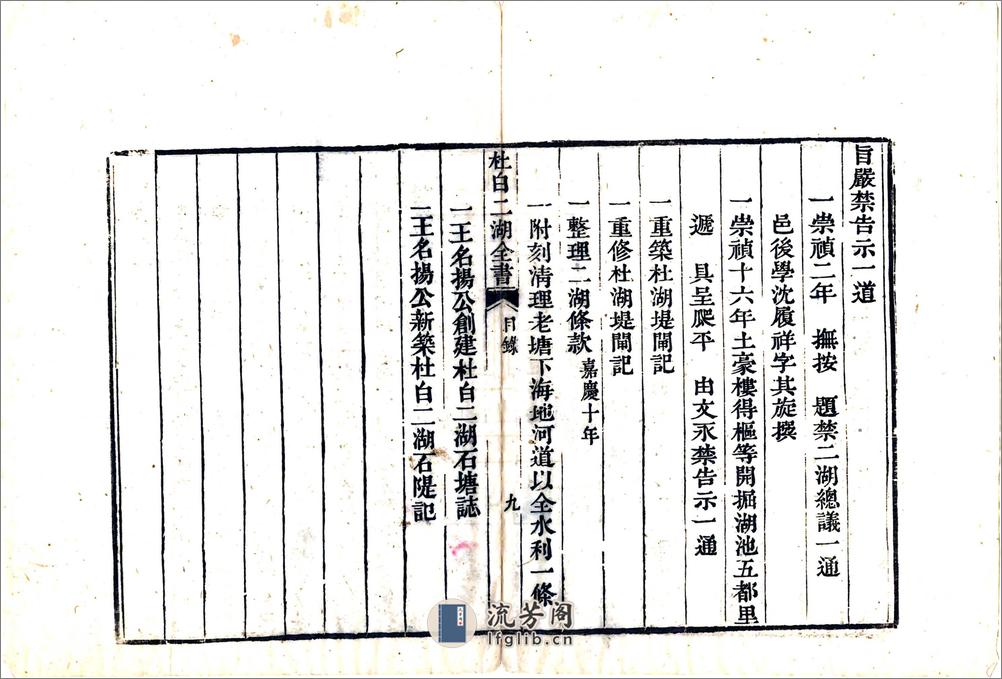 旨嚴禁告示一道
一崇禎二年　撫按　題禁二湖總議一通
邑後學沈履祥字其旋撰
一崇禎十六年土豪樓得樞等開掘湖池五都里
遞　具呈爬平　由文永禁告示一通
一重築杜湖堤閘記
一重修杜湖堤閘記
一整理二湖條款嘉慶十年
一附刻清理老塘下海地河道以全水利一條
杜白二湖全書　目錄　九
一王名揚公創建杜白二湖石塘誌
一王名揚公新築杜白二湖石隄記
流芳阁
lfglib.cn